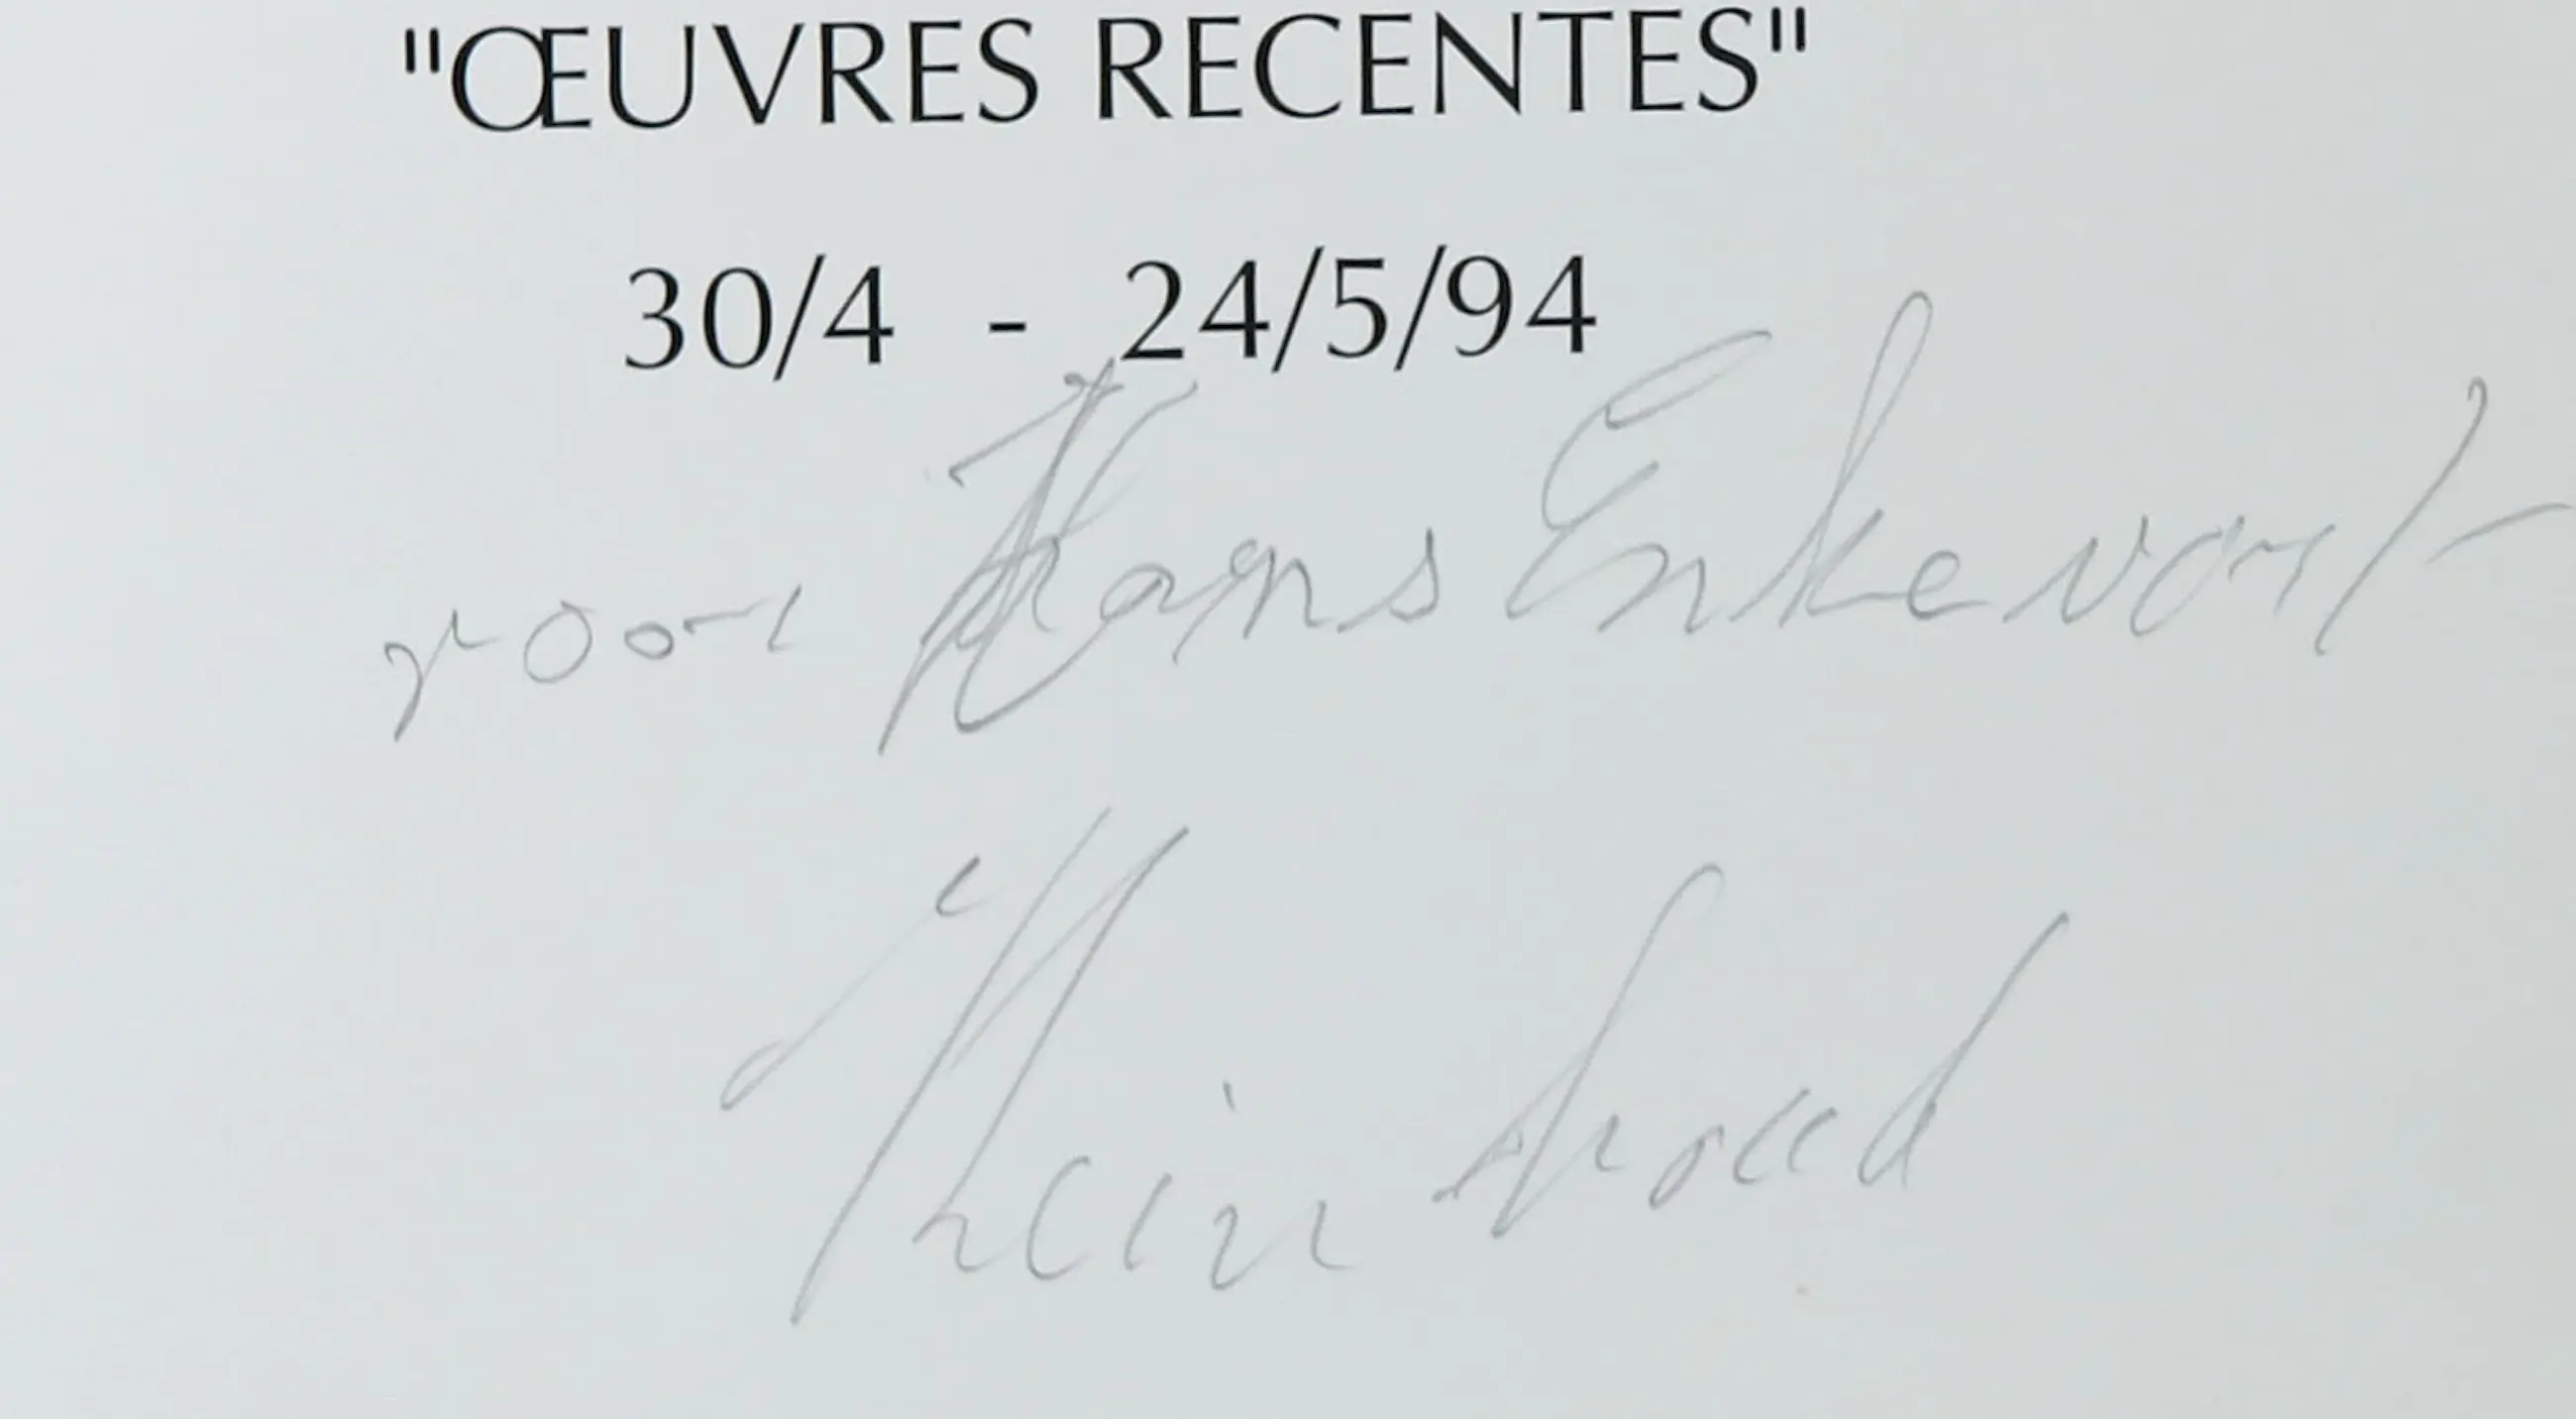 "ŒUVRES RECENTES"
30/4 - 24/5/94
voor Hans Enkevort